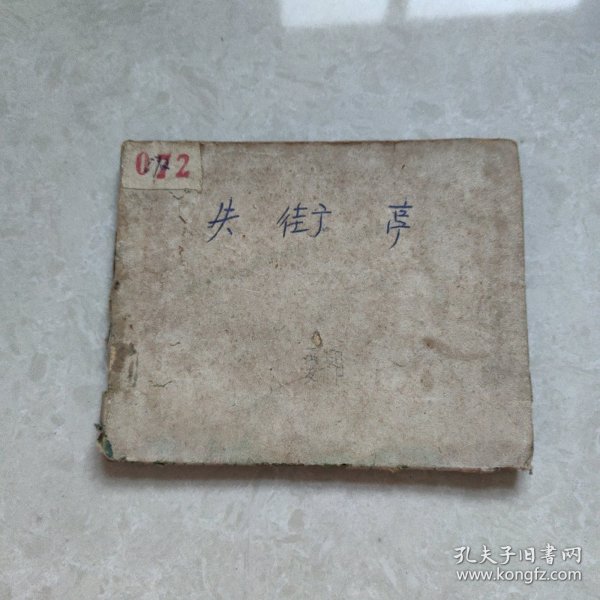 072
失街亭
孔夫子旧书网
www.kongfz.com